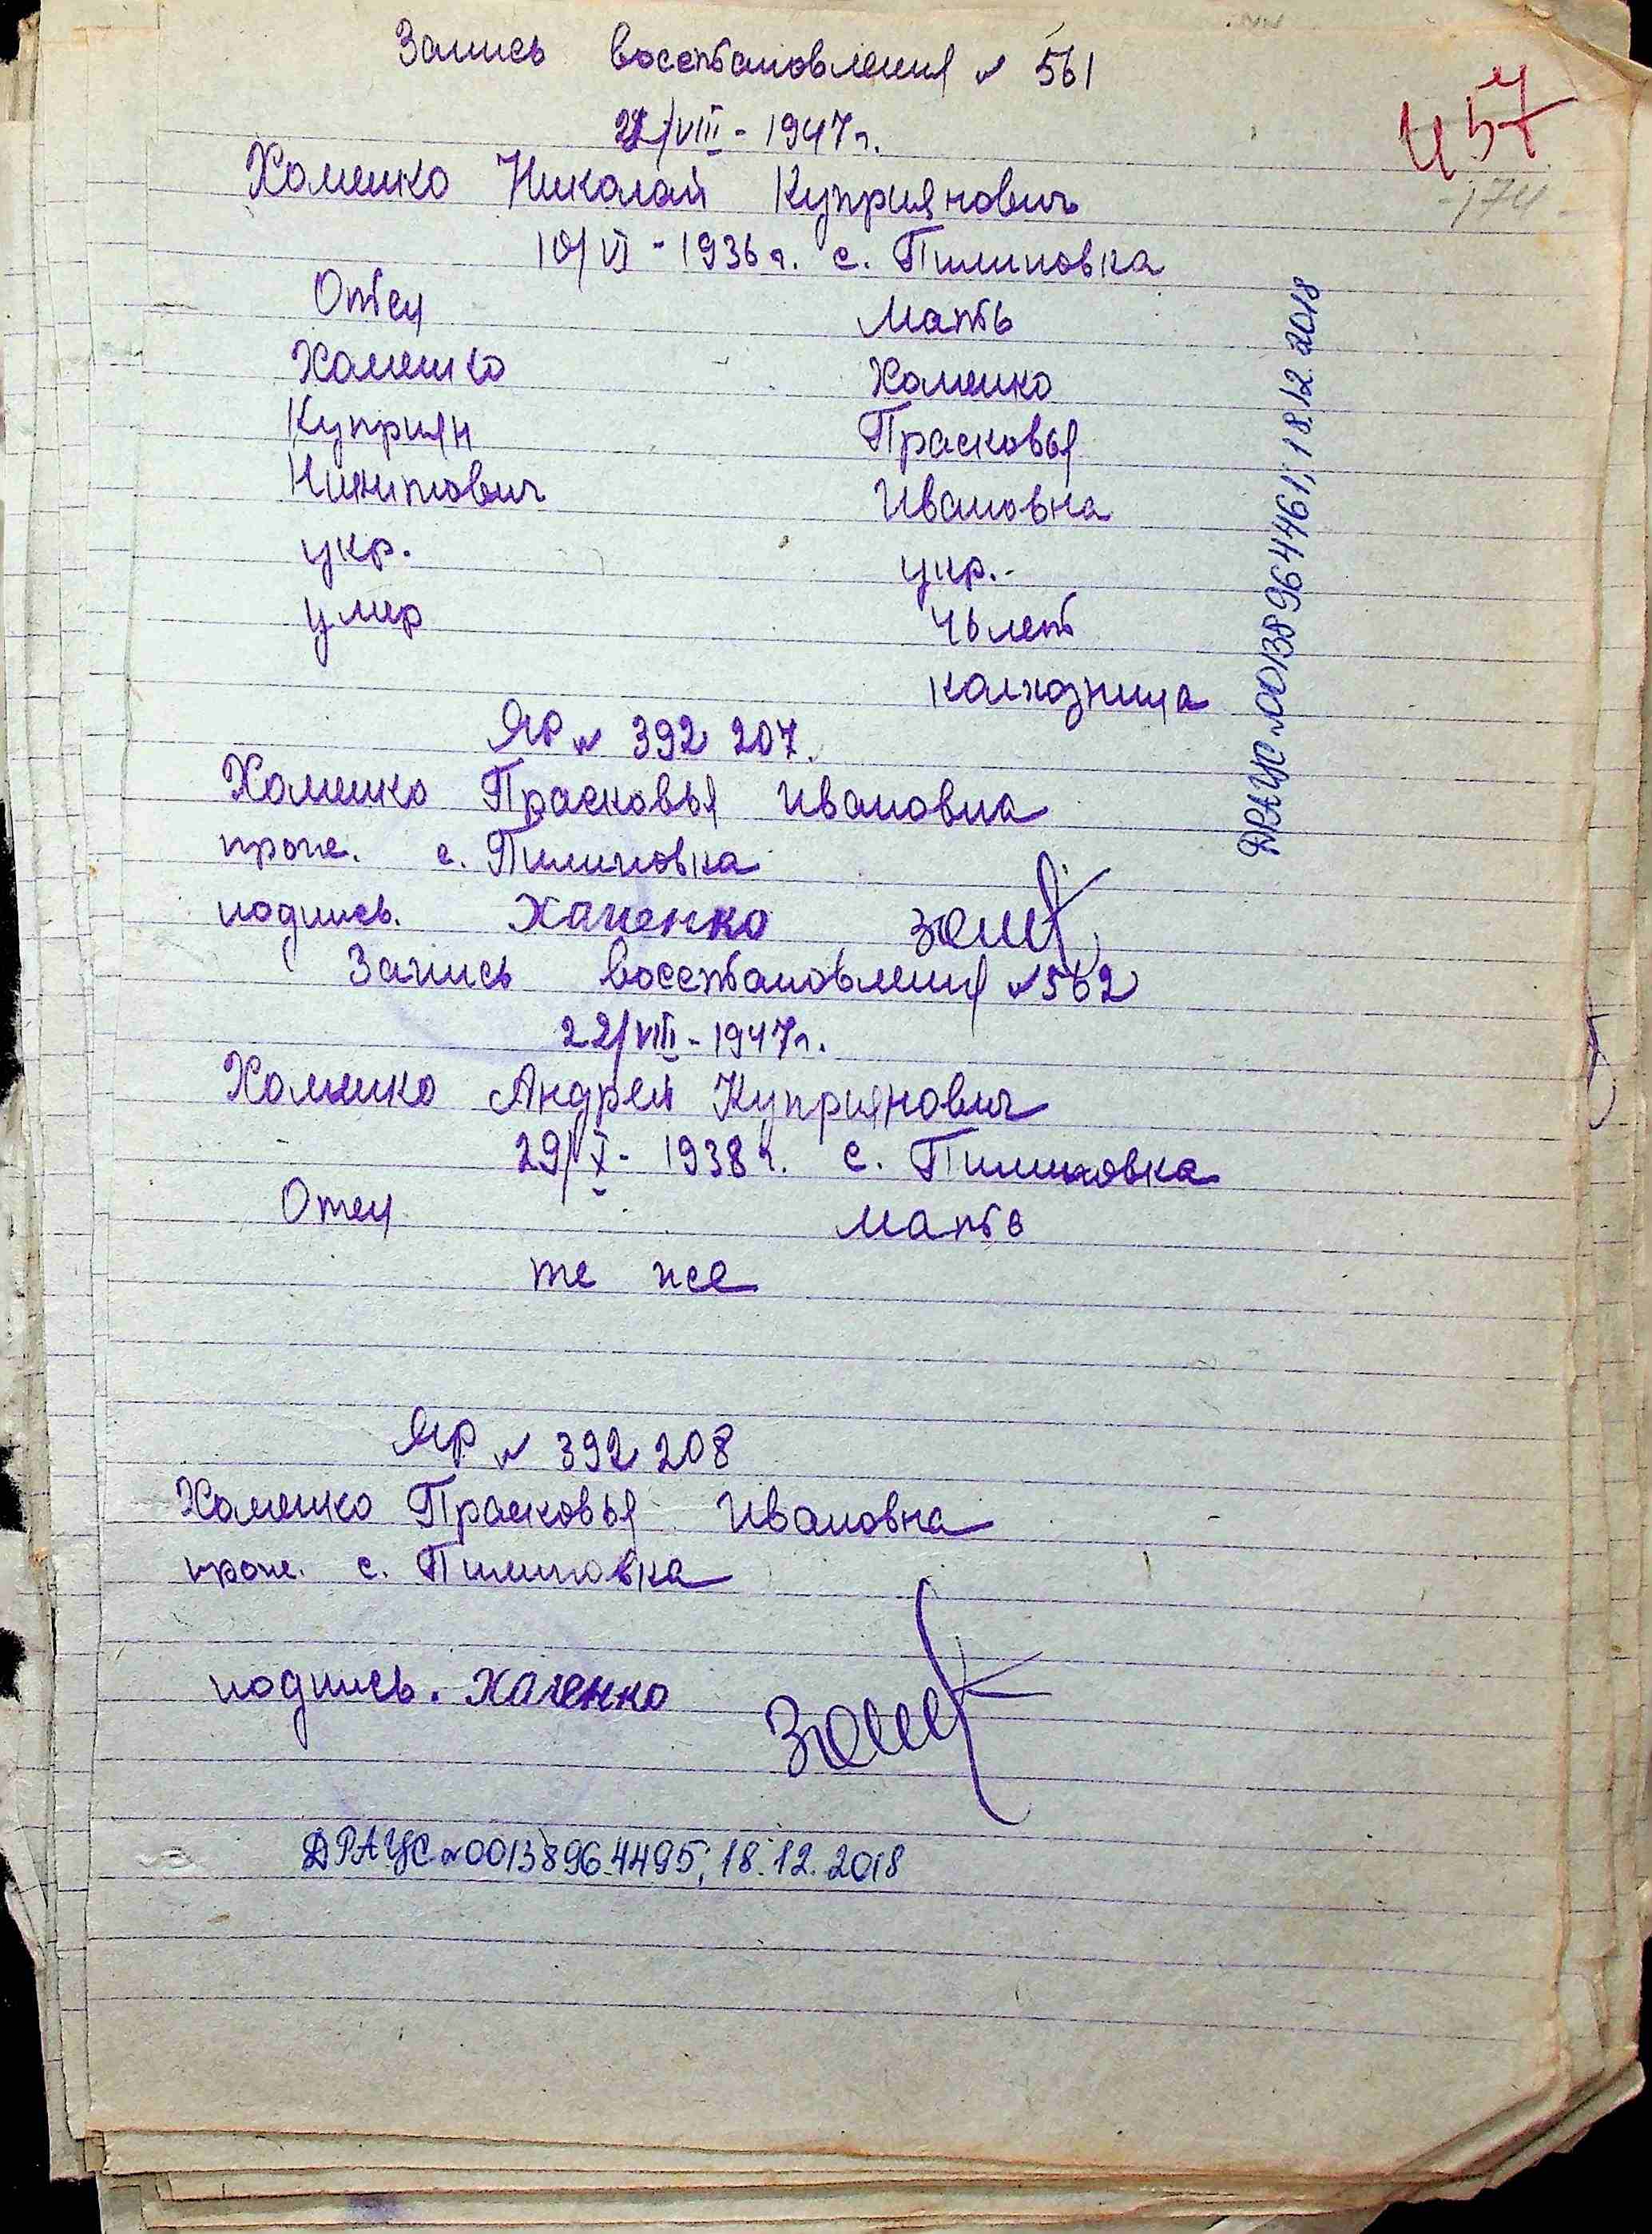 Запись восстановления № 561
22/VIII - 1947 г.
Хоменко Николай Куприянович
10/VI - 1936 г. с. Пилиповка
Отец Мать
Хоменко Хоменко
Куприян Прасковья
Никитович Ивановна
укр. укр.
умер 46 лет
колхозница
ЯР № 392 207.
Хоменко Прасковья Ивановна
прож. с. Пилиповка
подпись. Хаменко
Запись восстановления № 562
22/VIII - 1947 г.
Хоменко Андрей Куприянович
29/X - 1938 г. с. Пилиповка
Отец Мать
те же
ЯР № 392 208
Хоменко Прасковья Ивановна
прож. с. Пилиповка
подпись. Хаменко
ДРАЦС № 00138964495; 18.12.2018
ДРАЦС № 00138964461; 18.12.2018
457
174